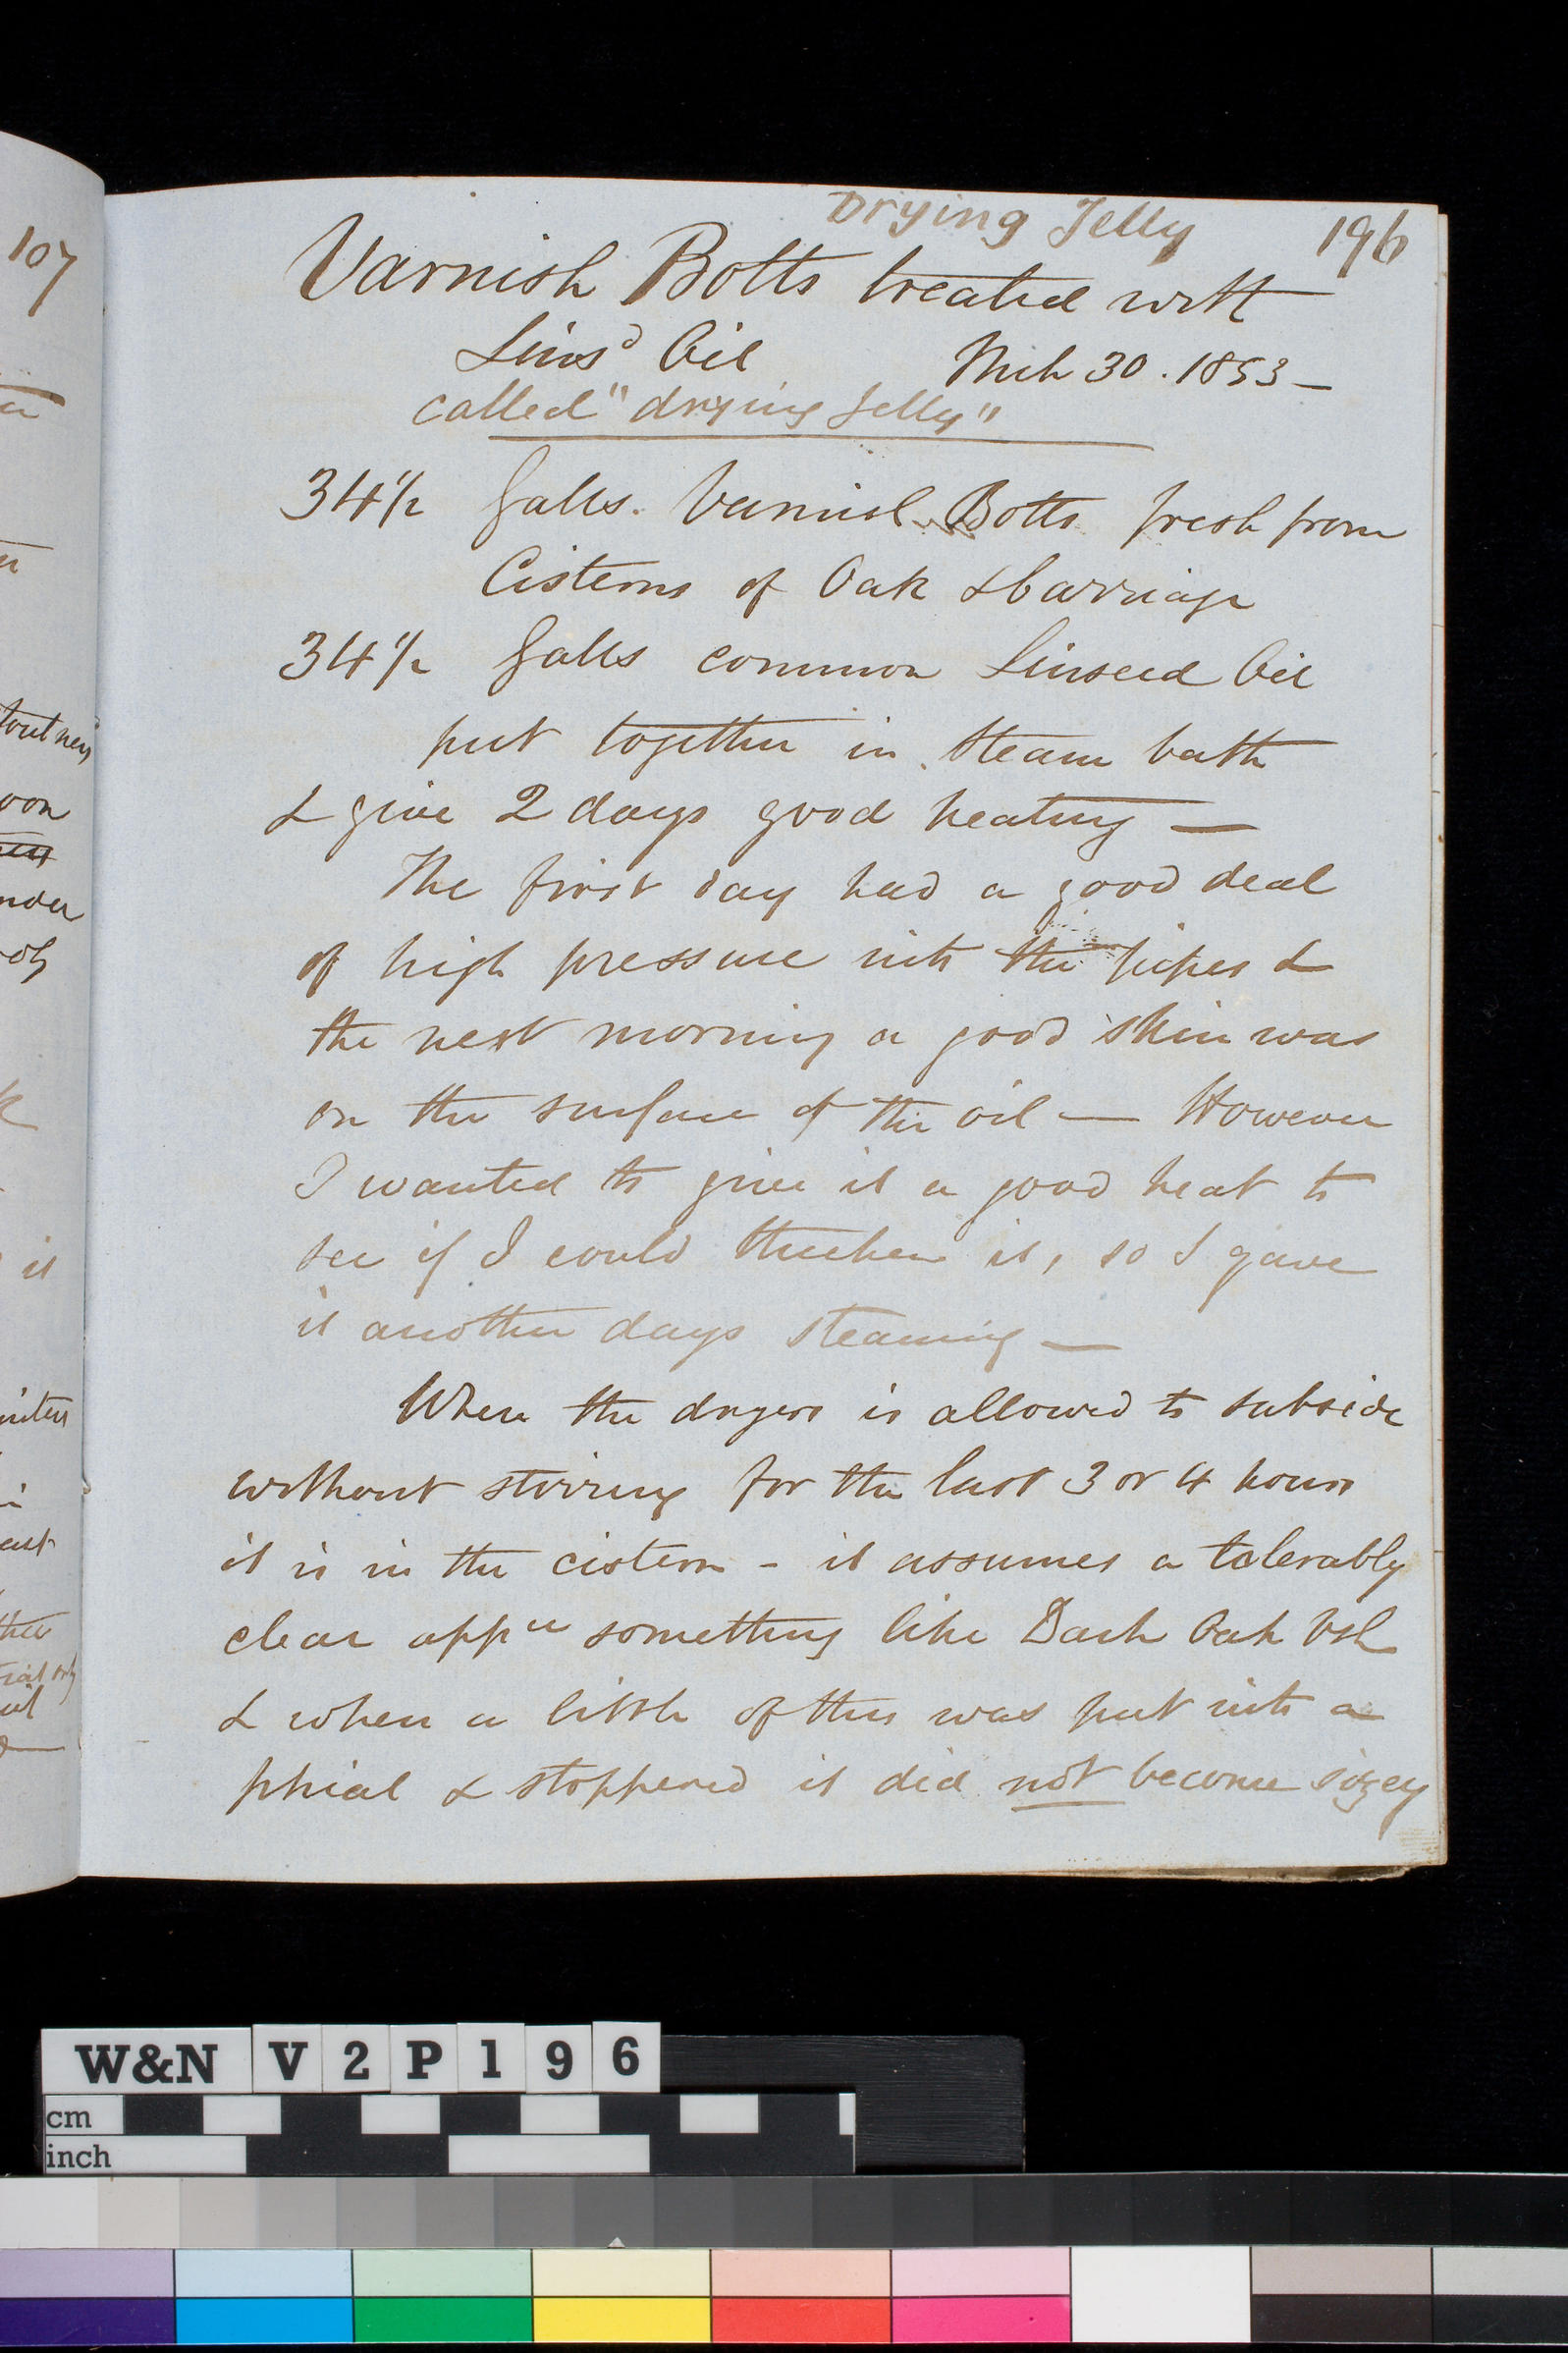 107
Drying Jelly
196
Varnish Botts treated with
Linsd Oil Mch 30. 1853 –
called "drying Jelly"
34 1/2 Galls. Varnish Botts fresh from
Cisterns of Oak & Carriage
34 1/2 Galls common Linseed Oil
put together in steam bath
& give 2 days good heating —
The first day had a good deal
of high pressure into the pipes &
the next morning a good skin was
on the surface of the oil — However
I wanted to give it a good heat to
see if I could thicken it, so I gave
it another days steaming —
When the dryers is allowed to subside
without stirring for the last 3 or 4 hours
it is in the cistern - it assumes a tolerably
clear appce something like Dark Oak Vsh
& when a little of this was put into a
phial & stoppered it did not become sizey
W&N V2P196
cm
inch